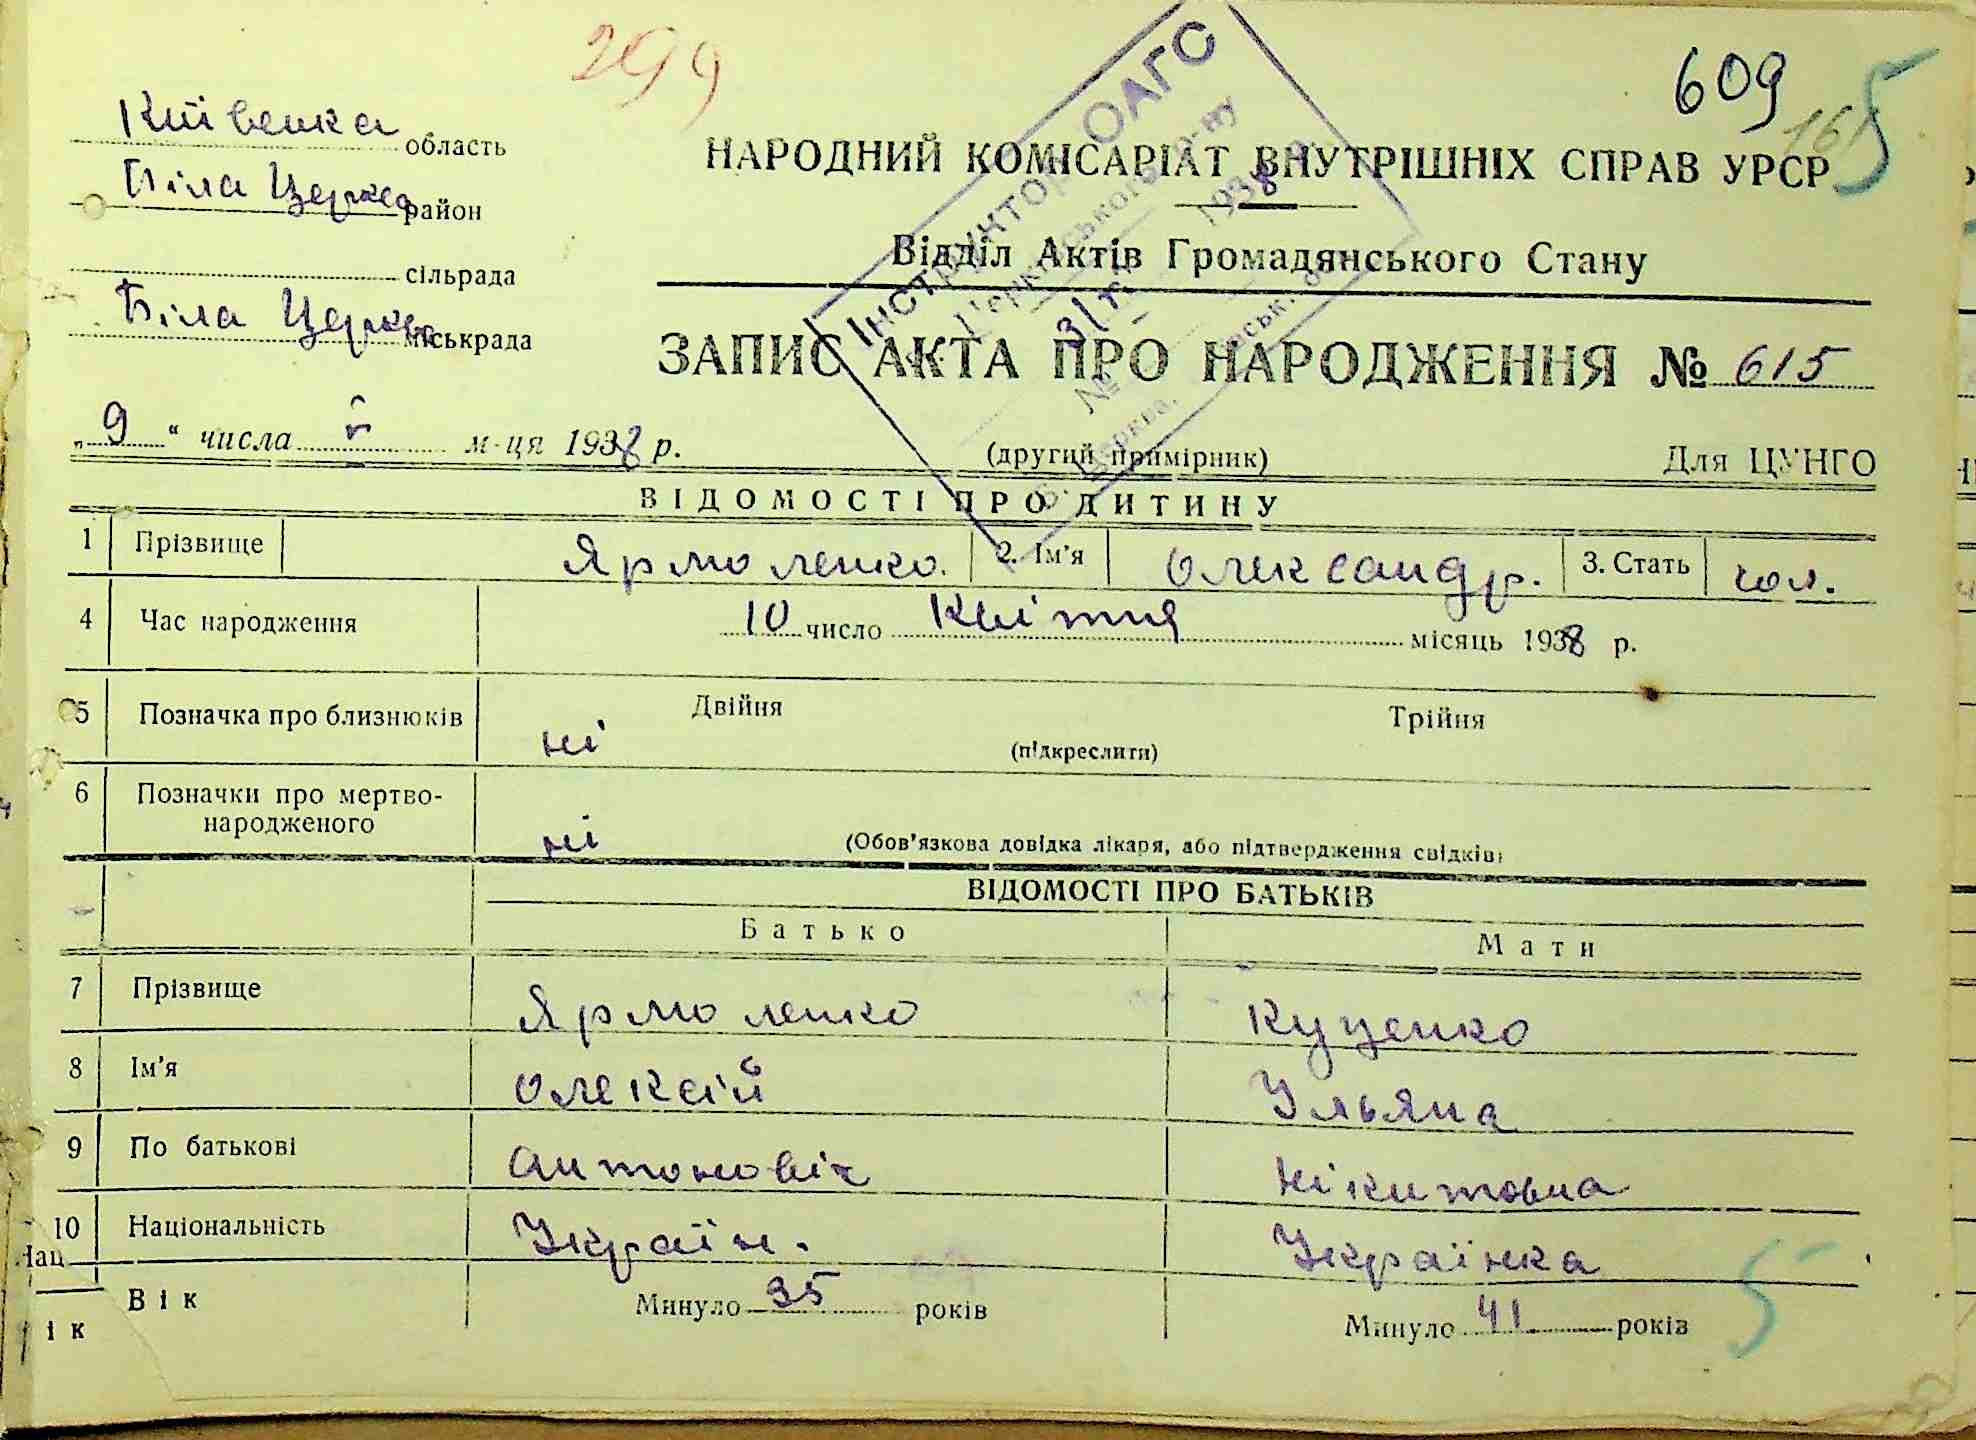 299
609
165
Київська область
Біла Церква район
сільрада
Біла Церква міськрада
НАРОДНИЙ КОМІСАРІАТ ВНУТРІШНІХ СПРАВ УРСР
Відділ Актів Громадянського Стану
ЗАПИС АКТА ПРО НАРОДЖЕННЯ № 615
Інструктор ОАГС
1938
„9“ числа м-ця 1938 р.
(другий примірник)
Для ЦУНГО
ВІДОМОСТІ ПРО ДИТИНУ
1 Прізвище Ярмоленко. 2. Ім'я Олександр. 3. Стать чол.
4 Час народження 10 число Квітня місяць 1938 р.
5 Позначка про близнюків ні Двійня Трійня
(підкреслити)
6 Позначки про мертво-
народженого ні (Обов'язкова довідка лікаря, або підтвердження свідків)
ВІДОМОСТІ ПРО БАТЬКІВ
Батько Мати
7 Прізвище Ярмоленко Куценко
8 Ім'я Олексій Ульяна
9 По батькові Антоновіч Нікитовна
10 Національність Україн. Українка
Вік Минуло 35 років Минуло 41 років
5